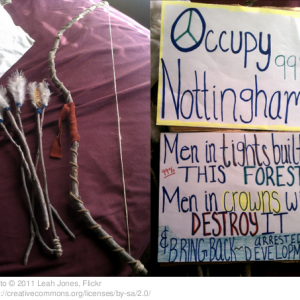 Occupy
99%
Nottingham
Men in tights built
99% THIS FOREST
Men in crowns
DESTROY IT
& BRING BACK ARRESTED
DEVELOPM
to © 2011 Leah Jones, Flickr
://creativecommons.org/licenses/by-sa/2.0/